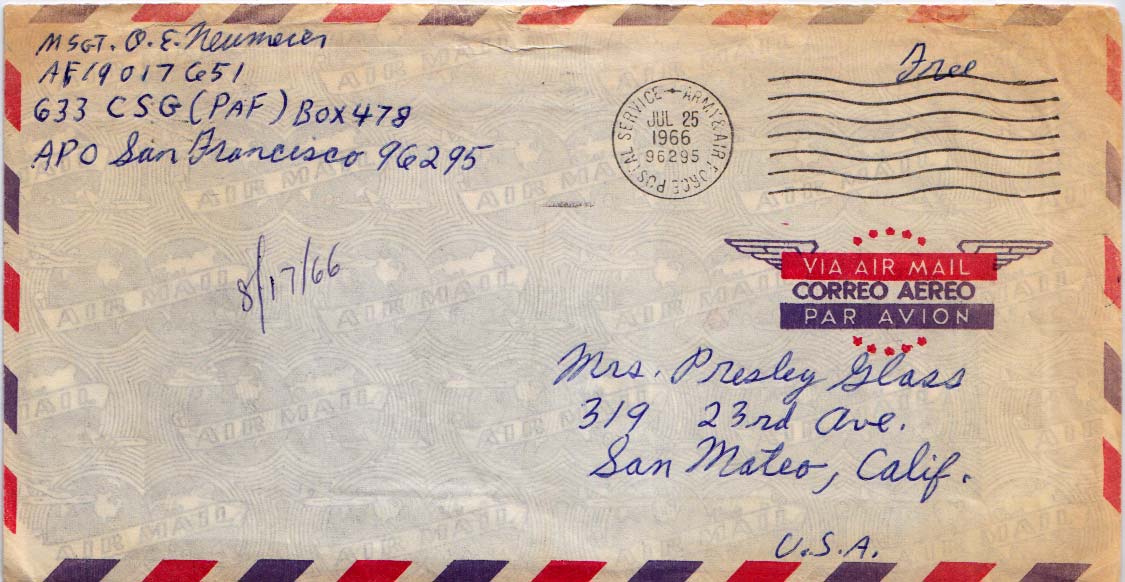 MSGT. O. E. Neumeier
AF19017651
633 CSG (PAF) Box 478
APO San Francisco 96295
Free
ARMY & AIR FORCE POSTAL SERVICE
JUL 25
1966
96295
8/17/66
VIA AIR MAIL
CORREO AEREO
PAR AVION
Mrs. Presley Glass
319 23rd Ave.
San Mateo, Calif.
U.S.A.
AIR MAIL